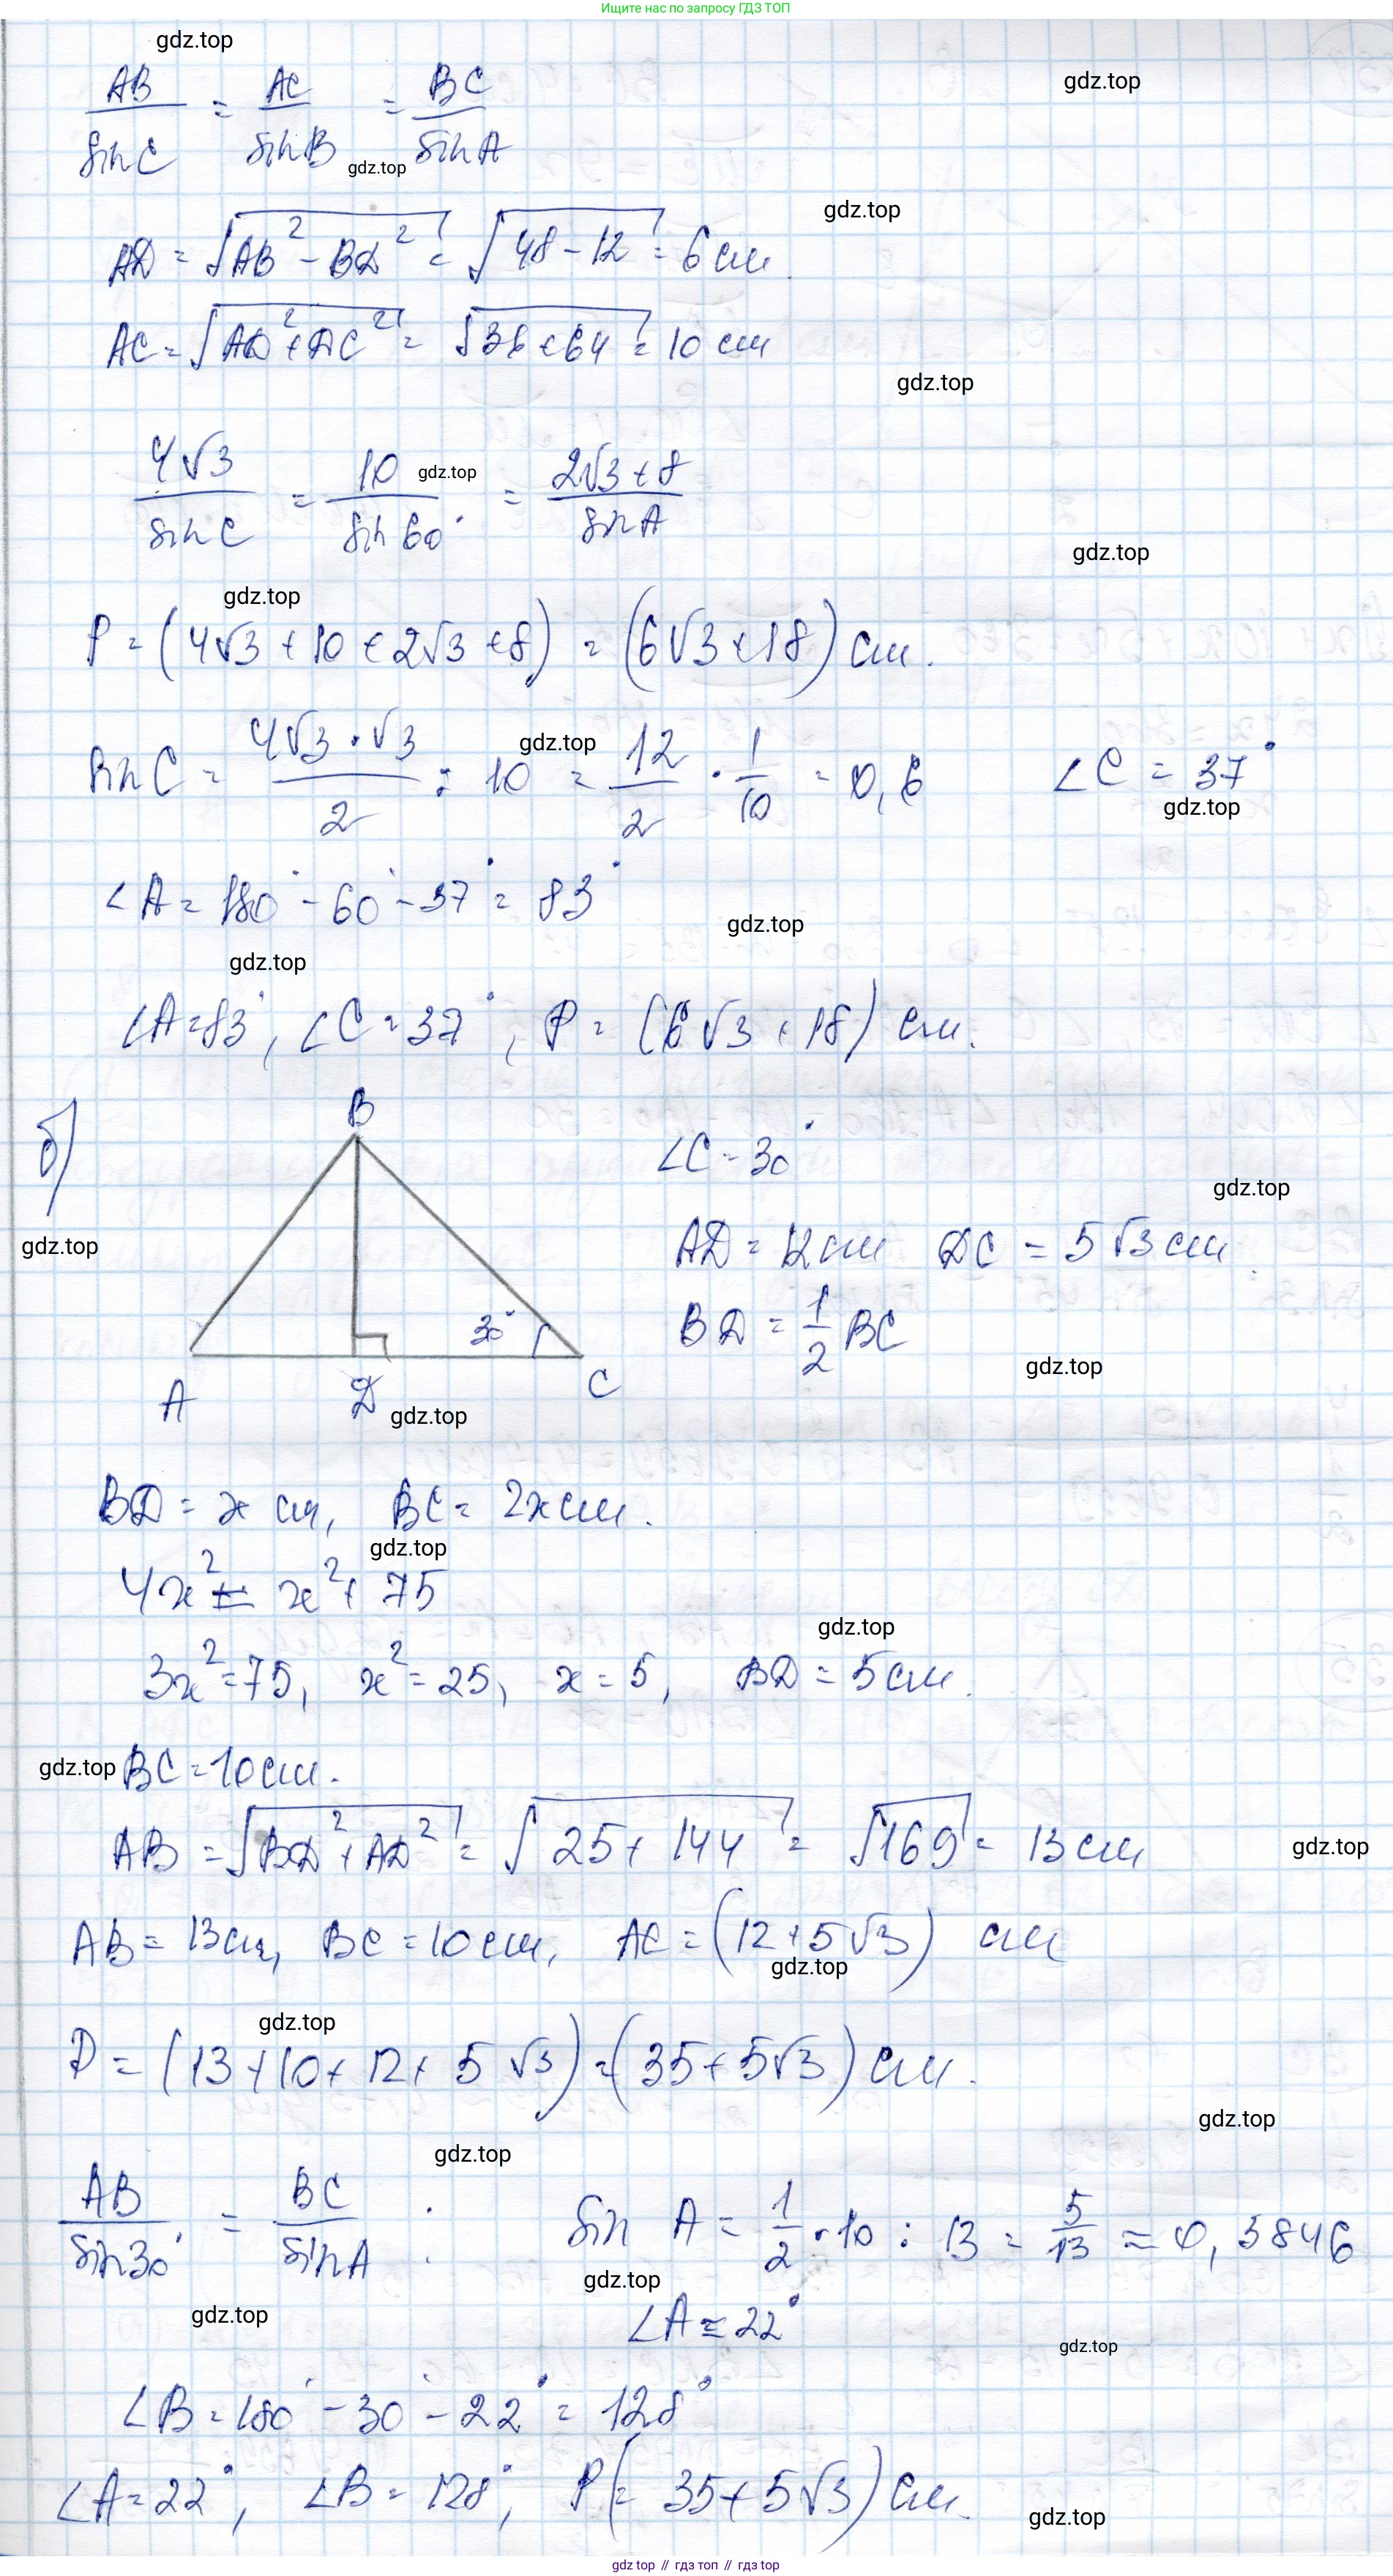 Ищите нас по запросу ГДЗ ТОП
gdz.top
gdz.top
AB/sin C = AC/sin B = BC/sin A
gdz.top
gdz.top
AD = √(AB² - BD²) = √(48 - 12) = 6 см.
AC = √(AD² + DC²) = √(36 + 64) = 10 см
gdz.top
4√3/sin C = 10/sin 60° = (2√3 + 8)/sin A
gdz.top
gdz.top
gdz.top
P = (4√3 + 10 + 2√3 + 8) = (6√3 + 18) см.
gdz.top
sin C = (4√3 · √3)/2 : 10 = 12/2 · 1/10 = 0,6 ∠C = 37°
gdz.top
∠A = 180° - 60° - 37° = 83°
gdz.top
gdz.top
∠A = 83°, ∠C = 37°, P = (6√3 + 18) см.
б)
B
∠C = 30°
gdz.top
gdz.top
AD = 12 см DC = 5√3 см.
30°
BD = 1/2 BC
gdz.top
A D C
gdz.top
BD = x см, BC = 2x см.
gdz.top
4x² = x² + 75
gdz.top
3x² = 75, x² = 25, x = 5, BD = 5 см.
gdz.top
BC = 10 см.
AB = √(BD² + AD²) = √(25 + 144) = √169 = 13 см
gdz.top
AB = 13 см, BC = 10 см, AC = (12 + 5√3) см
gdz.top
gdz.top
P = (13 + 10 + 12 + 5√3) = (35 + 5√3) см.
gdz.top
gdz.top
AB/sin 30° = BC/sin A : sin A = 1/2 · 10 : 13 = 5/13 ≈ 0,3846
gdz.top
gdz.top
∠A ≈ 22°
gdz.top
∠B = 180° - 30° - 22° = 128°
∠A = 22°, ∠B = 128°, P (= 35 + 5√3) см.
gdz.top
gdz.top // гдз топ // gdz top